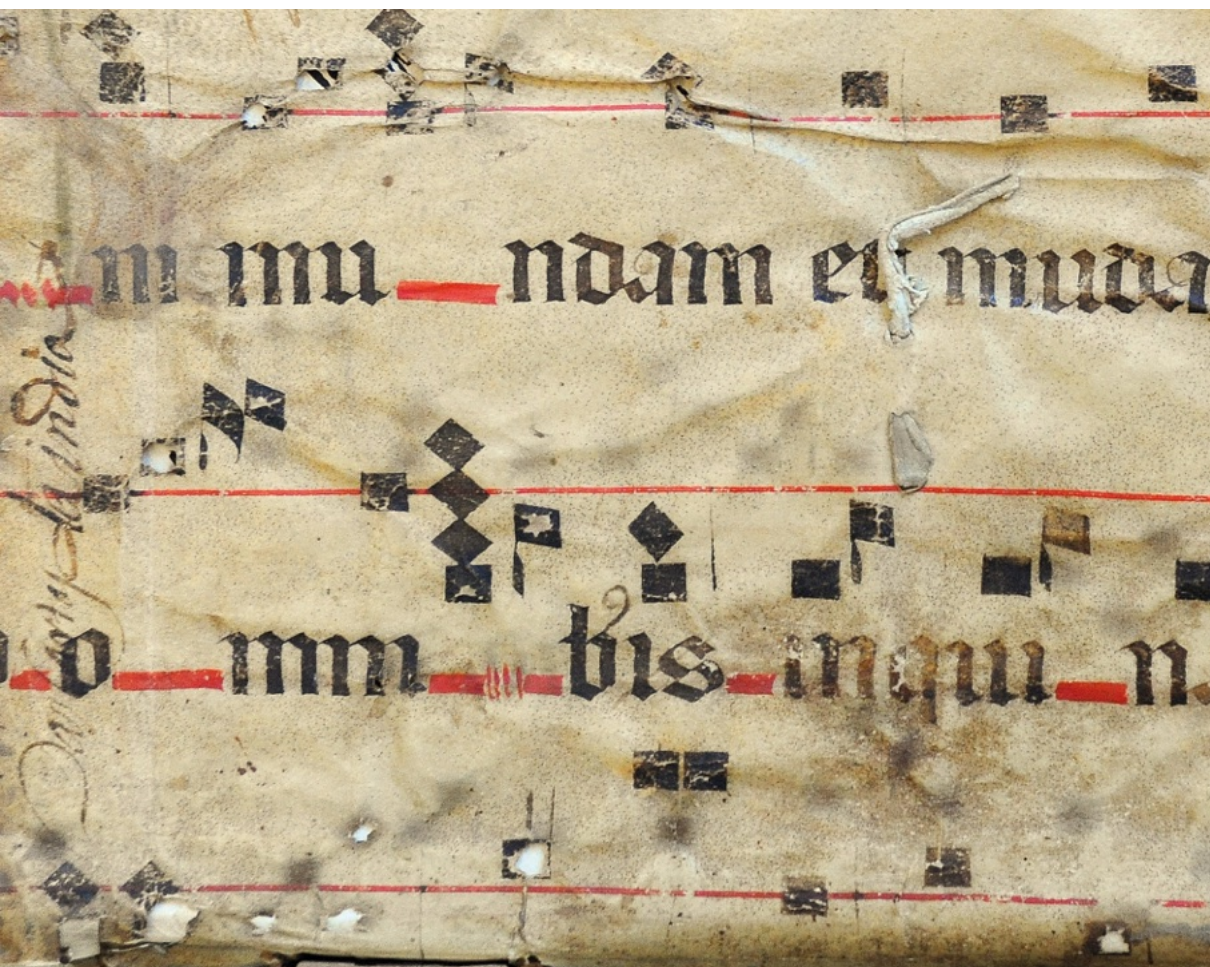 m mu ndam et muda
o mni bis inqui n
india